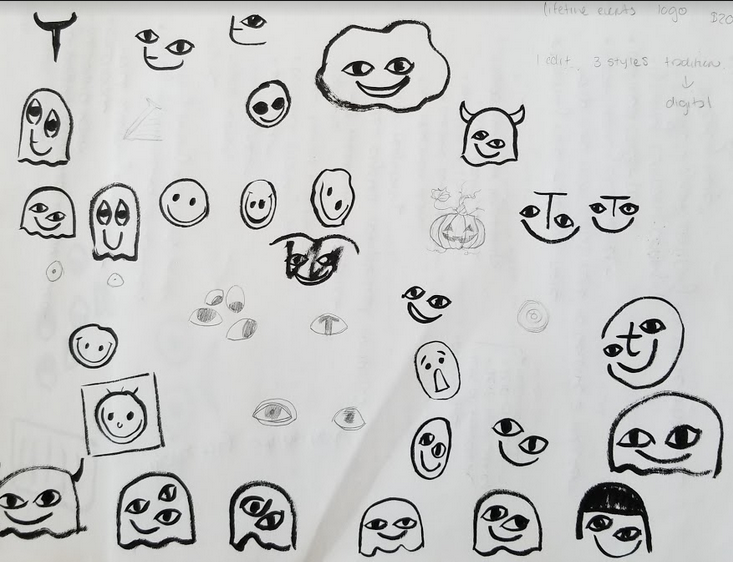 lifetime events logo $20
1 edit 3 styles tradition
↓
digital